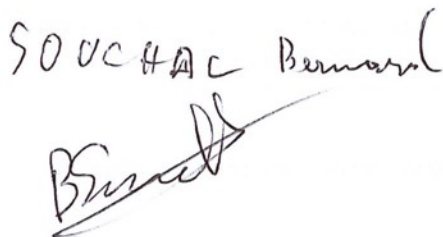 SOUCHAL Bernard